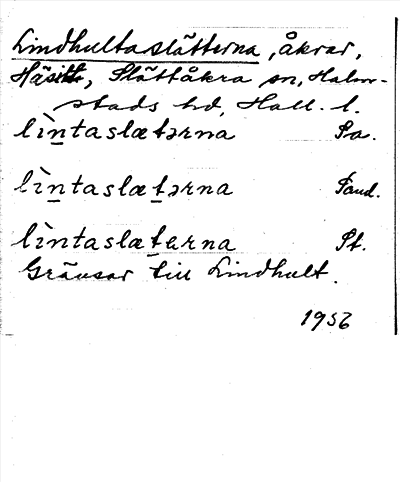 Lindhultaslätterna, åkrar,
Slättåkra sn, Halm-
stads hd, Hall. l.
lìn̲taslætərna Pa.
lìn̲taslæt̲ərna Pand.
lìntaslæt̲erna Pt.
Gränsar till Lindhult.
1956